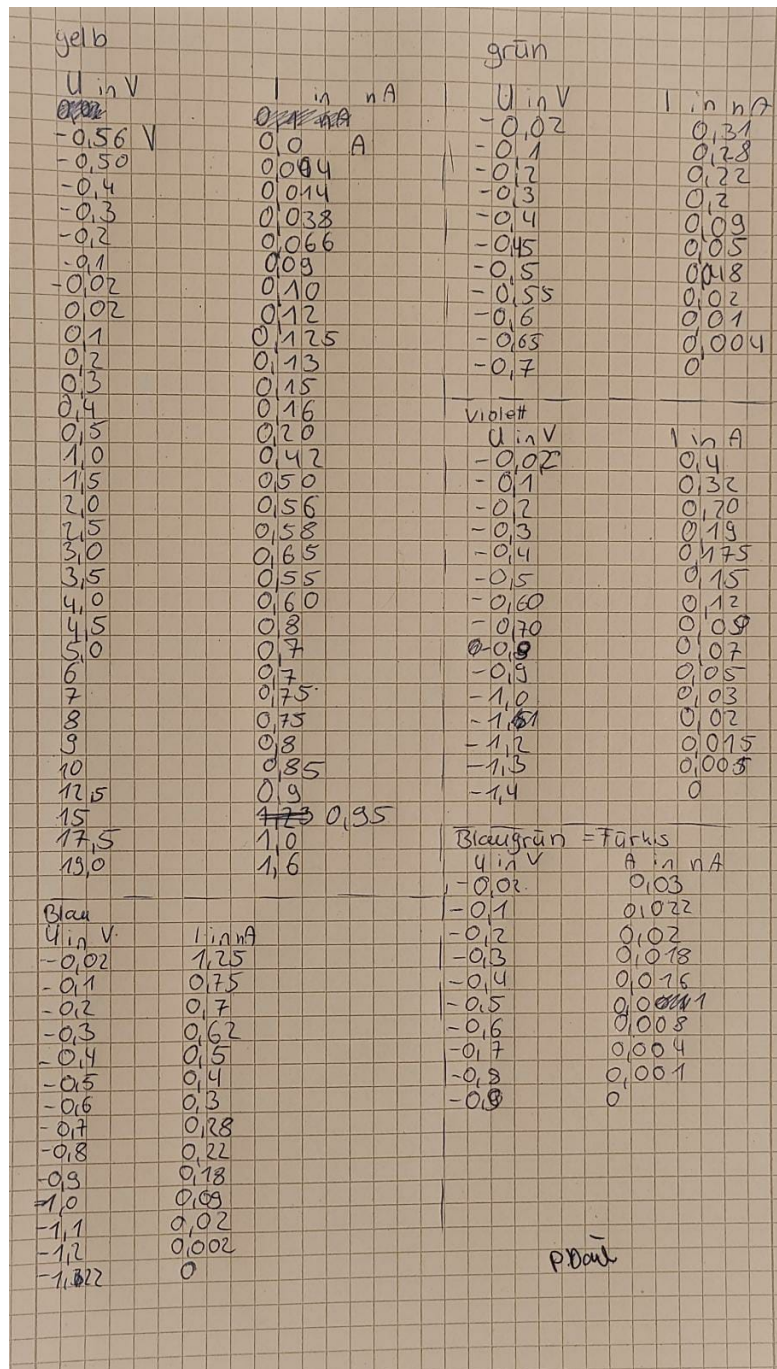 gelb
U in V I in nA
-0,56 V 0,0 A
-0,50 0,004
-0,4 0,014
-0,3 0,038
-0,2 0,066
-0,1 0,09
-0,02 0,10
0,02 0,12
0,1 0,125
0,2 0,13
0,3 0,15
0,4 0,16
0,5 0,20
1,0 0,42
1,5 0,50
2,0 0,56
2,5 0,58
3,0 0,65
3,5 0,55
4,0 0,60
4,5 0,8
5,0 0,7
6 0,7
7 0,75
8 0,75
9 0,8
10 0,85
12,5 0,9
15 0,95
17,5 1,0
19,0 1,6
Blau
U in V I in nA
-0,02 1,25
-0,1 0,75
-0,2 0,7
-0,3 0,62
-0,4 0,5
-0,5 0,4
-0,6 0,3
-0,7 0,28
-0,8 0,22
-0,9 0,18
-1,0 0,09
-1,1 0,02
-1,2 0,002
0
grün
U in V I in nA
-0,02 0,31
-0,1 0,28
-0,2 0,22
-0,3 0,2
-0,4 0,09
-0,45 0,05
-0,5 0,048
-0,55 0,02
-0,6 0,01
-0,65 0,004
-0,7 0
Violett
U in V I in A
-0,02 0,4
-0,1 0,32
-0,2 0,20
-0,3 0,19
-0,4 0,175
-0,5 0,15
-0,60 0,12
-0,70 0,09
-0,8 0,07
-0,9 0,05
-1,0 0,03
-1,1 0,02
-1,2 0,015
-1,3 0,005
-1,4 0
Blaugrün = Türkis
U in V A in nA
-0,02 0,03
-0,1 0,022
-0,2 0,02
-0,3 0,018
-0,4 0,016
-0,5 0,01
-0,6 0,008
-0,7 0,004
-0,8 0,001
-0,9 0